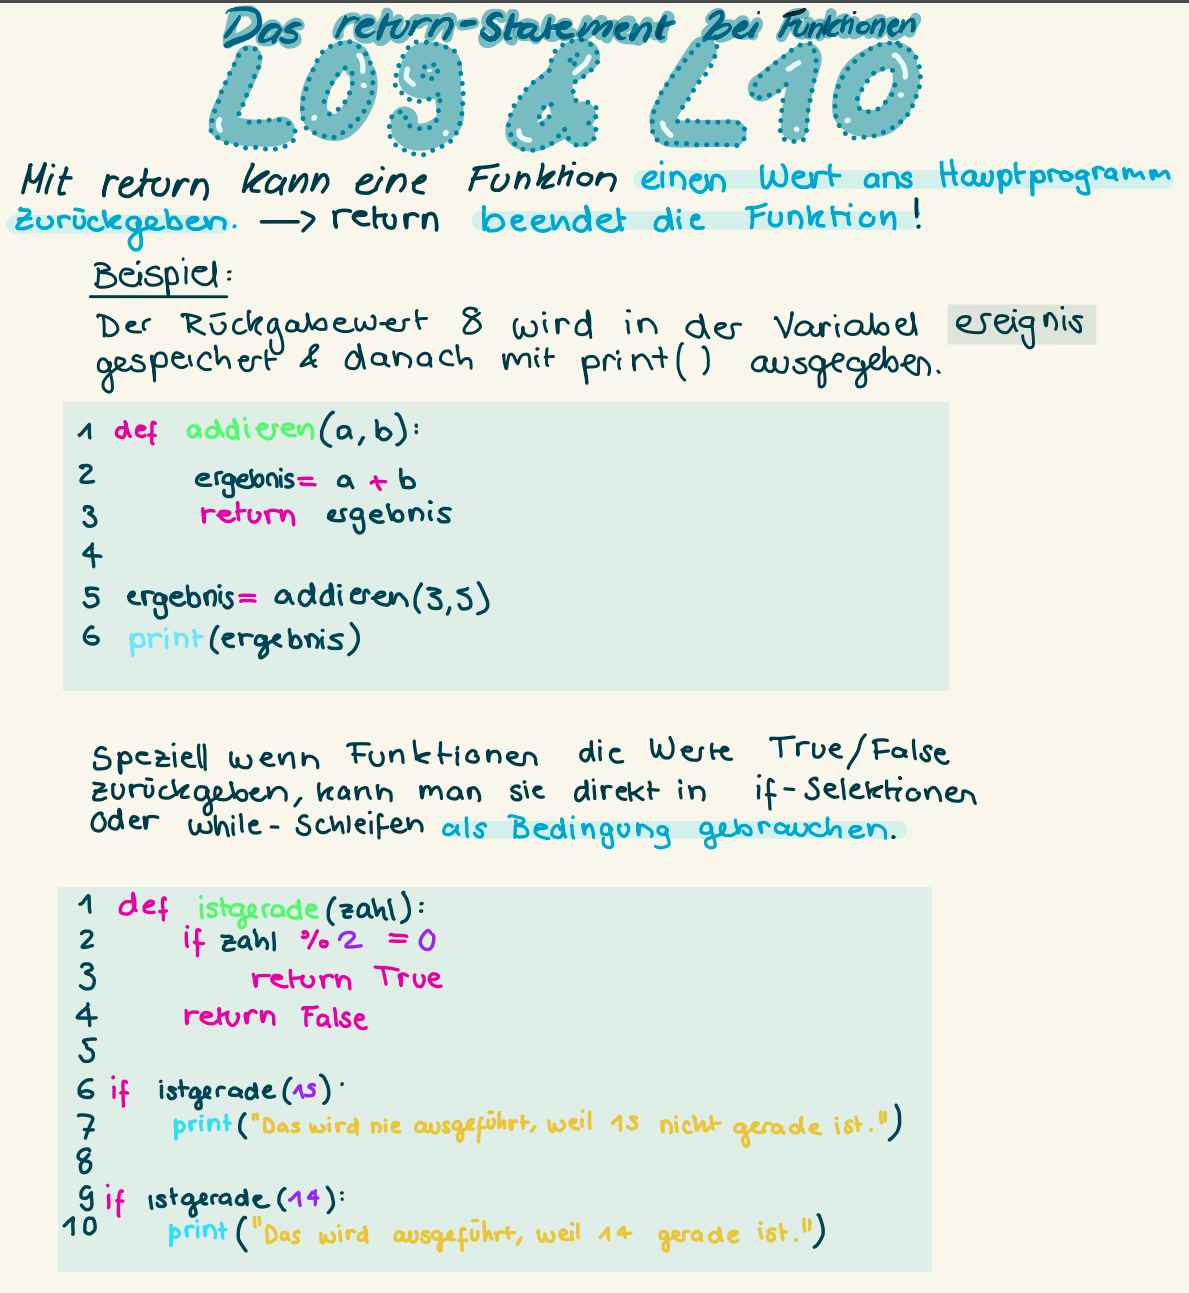 Das return-Statement bei Funktionen
L09 & L10
Mit return kann eine Funktion einen Wert ans Hauptprogramm
zurückgeben. —> return beendet die Funktion!
Beispiel:
Der Rückgabewert 8 wird in der Variabel ereignis
gespeichert & danach mit print() ausgegeben.
1 def addieren(a, b):
2 ergebnis= a + b
3 return ergebnis
4
5 ergebnis= addieren(3,5)
6 print(ergebnis)
Speziell wenn Funktionen die Werte True/False
zurückgeben, kann man sie direkt in if-Selektionen
Oder while-Schleifen als Bedingung gebrauchen.
1 def istgerade(zahl):
2 if zahl % 2 = 0
3 return True
4 return False
5
6 if istgerade(15)·
7 print("Das wird nie ausgeführt, weil 15 nicht gerade ist.")
8
9 if istgerade(14):
10 print("Das wird ausgeführt, weil 14 gerade ist.")